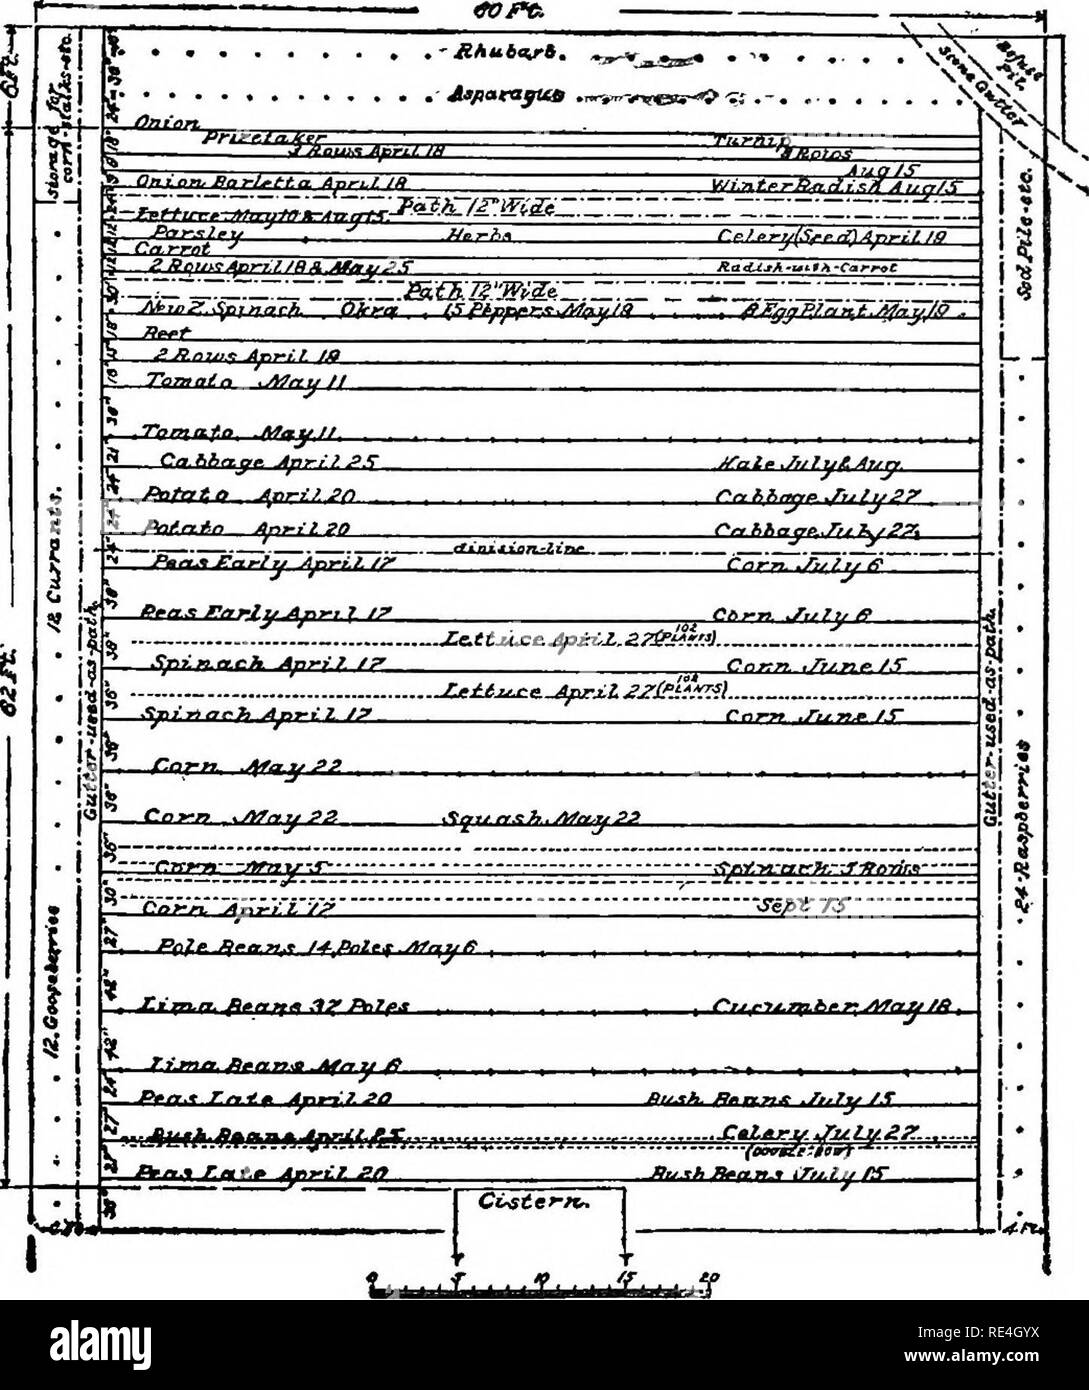 60 Ft.
Rhubarb.
Asparagus
6 Ft.
Storage for
corn-stalks-etc.
Refuse
Pit.
Stone Gutter
Onion
Prizetaker
3 Rows April 18
Turnip
Rows
Aug 15
Onion Barletta April 18
Winter Radish Aug 15
Path 12" Wide
Lettuce May 10 & Aug 15.
Parsley Herbs Celery (Seed) April 19
Carrot
2 Rows April 18 & May 25
Radish-with-Carrot
Path 12" Wide
New Z. Spinach Okra 15 Peppers May 18 8 Egg Plant May 18
Beet
2 Rows April 18
Tomato May 11
Tomato May 11
Cabbage April 25
Potato April 20 Cabbage July 27
Potato April 20 Cabbage July 27
division-line
Peas Early April 17 Corn July 6
Peas Early April 17 Corn July 6
Lettuce April 27 (102 PLANTS)
Spinach April 17 Corn June 15
Lettuce April 27 (102 PLANTS)
Spinach April 17 Corn June 15
Corn May 22
Corn May 22 Squash May 22
Corn May 5 Spinach 5 Rows
Corn April 17 Sept 15
Pole Beans 14 Poles May 6
Lima Beans 37 Poles Cucumber May 18
Lima Beans May 6
Peas Late April 20 Bush Beans July 15
Bush Beans April 25 Celery July 27
(DOUBLE-ROW)
Peas Late April 20 Bush Beans July 15
Cistern.
62 Ft.
12 Currants.
12. Gooseberries
Gutter-used-as-path.
Gutter-used-as-path.
Sod Pile-etc.
24-Raspberries
4 Ft.
0 5 10 15 20
alamy
Image ID: RE4GYX
www.alamy.com